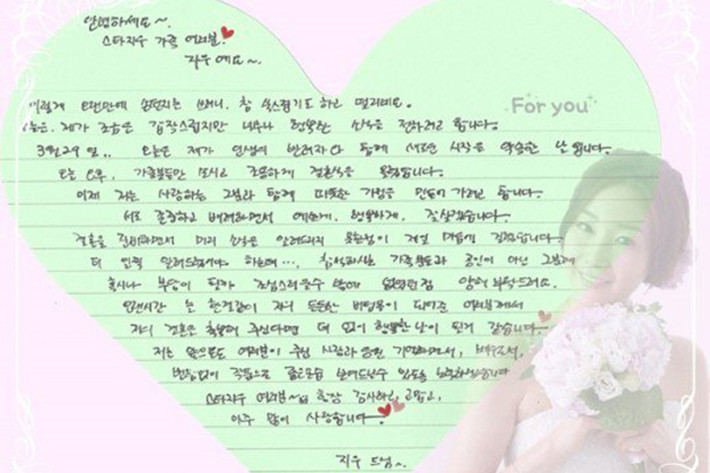 안녕하세요~.
스타지우 가족 여러분.
지우 에요~.
이렇게 오랜만에 손편지를 쓰려니, 참 쑥스럽기도 하고 떨리네요.
오늘은, 제가 조금은 갑작스럽지만 너무나 행복한 소식을 전하려고 합니다.
For you
3월 29일.. 오늘은 제가 인생의 반려자와 함께 새로운 시작을 약속한 날 입니다.
오늘 오후, 가족분들만 모시고 조용하게 결혼식을 올렸습니다.
이제 저는 사랑하는 그분과 함께 따뜻한 가정을 만들어 가려고 합니다.
서로 존중하고 배려하면서 예쁘게, 행복하게, 잘살겠습니다.
결혼을 준비하면서 미리 소식을 알려드리지 못한점이 제일 마음에 걸렸습니다.
더 일찍 알려드렸어야 하는데..., 참석하시는 가족분들과 공인이 아닌 그분께
혹시나 부담이 될까 조심스러울수 밖에 없었던점 양해 부탁드려요.
오랜시간 늘 한결같이 저의 든든한 버팀목이 되어준 여러분께서
저의 결혼을 축복해 주신다면 더 없이 행복한 날이 될거 같습니다.
저는 앞으로도 여러분이 주신 사랑과 응원 기억하면서, 배우로서,
변함없이 작품으로 좋은모습 보여드릴수 있도록 노력하겠습니다.
스타지우 여러분~ 항상 감사하고, 고맙고,
아주 많이 사랑합니다.
지우 드림~.